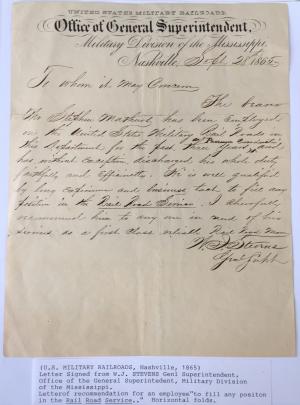 UNITED STATES MILITARY RAILROADS.
Office of General Superintendent,
Military Division of the Mississippi.
Nashville, Sept 28 1865
To whom it May Concern
The bearer
Mr Stephen has been Employed
on the United States Military Rail Roads in
as
this Department for the past Three Years and
has, without exception discharged his whole duty
faithfully and efficiently. He is well qualified
by long experience and business tact to fill any
position in the Rail Road Service. I cheerfully
recommend him to any one in need of his
services as a first class reliable Rail Road Man
W. J. Stevens
Genl Supt
(U.S. MILITARY RAILROADS, Nashville, 1865)
Letter Signed from W.J. STEVENS Genl Superintendent.
Office of the General Superintedent, Military Division
of the Mississippi.
Letterof recommendation for an employee"to fill any positon
in the Rail Road Service.." Horizontal folds.